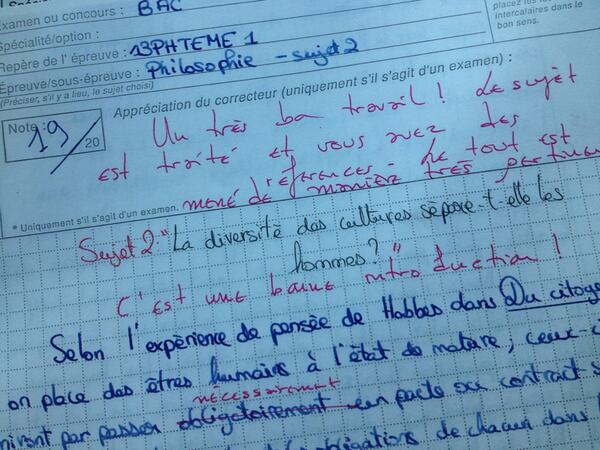 Examen ou concours : BAC
Spécialité/option :
Repère de l'épreuve : 13PHTEME1
Épreuve/sous-épreuve : Philosophie - sujet 2
(Préciser, s'il y a lieu, le sujet choisi)
placez les
intercalaires dans le
bon sens.
Note :
19
/20
Appréciation du correcteur (uniquement s'il s'agit d'un examen) :
Un très bon travail ! Le sujet
est traité et vous avez des
références. Le tout est
mené de manière très
* Uniquement s'il s'agit d'un examen.
Sujet 2 : "La diversité des cultures sépare-t-elle les
hommes ? "
C'est une bonne introduction !
Selon l'expérience de pensée de Hobbes dans Du
on place des êtres humains à l'état de nature ; ceux-ci
nécessairement
par passer obligatoirement un pacte ou contrat
obligations de chacun dans